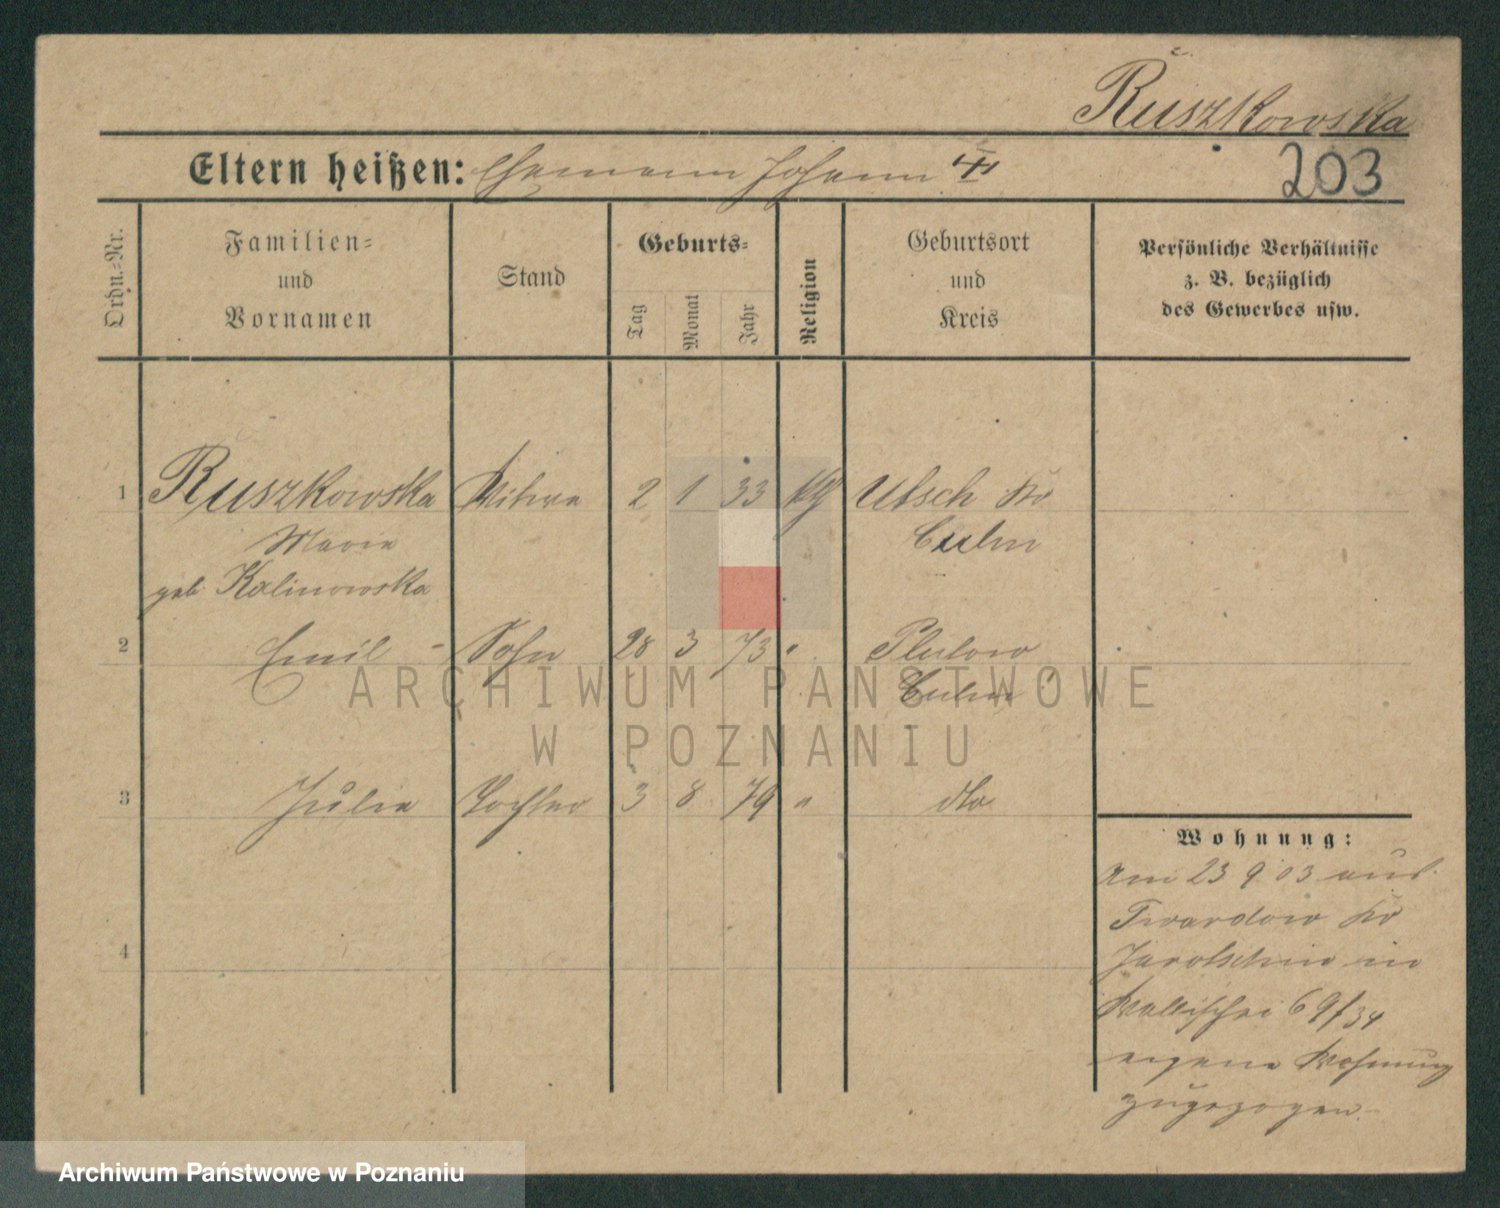 Ruszkowska
Eltern heißen: Ehemann Johann
203
Ordn.-Nr.
Familien-
und
Vornamen
Stand
Geburts-
Tag
Monat
Jahr
Religion
Geburtsort
und
Kreis
Persönliche Verhältnisse
z. B. bezüglich
des Gewerbes usw.
1 Ruszkowska Witwe 2 1 33 kth Utsch Kr
Marie Culm
geb Kalinowska
2 Emil - Sohn 28 3 73 " Plutowo
Culm
3 Julie Tochter 3 8 79 " dto
4
Wohnung:
Am 23 9 03 aus
Twardow Kr
Jarotschin in
Wallischei 69/34
eigene Wohnung
zugezogen.
ARCHIWUM PAŃSTWOWE
W POZNANIU
Archiwum Państwowe w Poznaniu